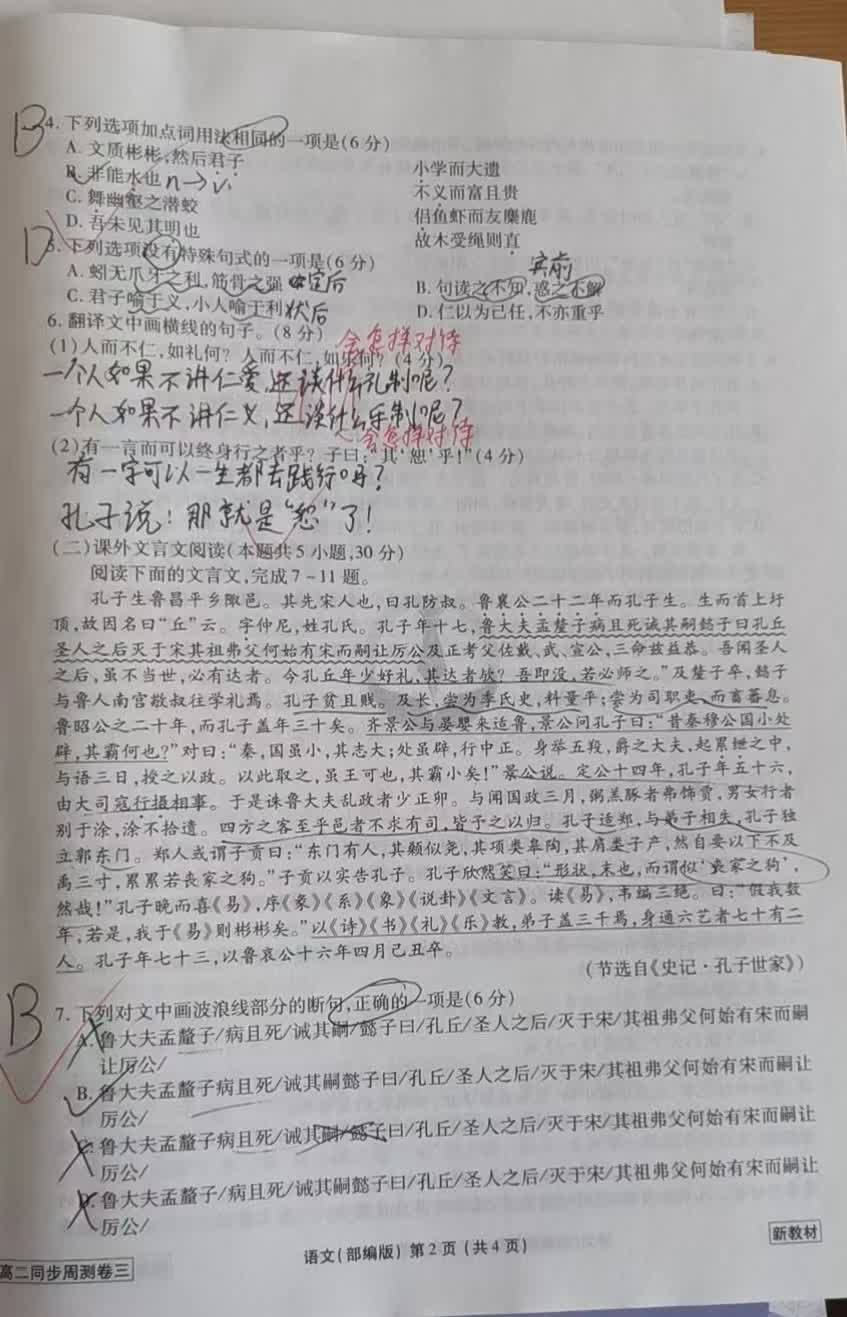 B
4. 下列选项加点词用法相同的一项是(6 分)
A. 文质彬彬,然后君子
小学而大遗
B. 非能水也 n→v.
不义而富且贵
C. 舞幽壑之潜蛟
侣鱼虾而友麋鹿
D. 吾未见其明也
故木受绳则直
D
5. 下列选项没有特殊句式的一项是(6 分)
宾前
A. 蚓无爪牙之利,筋骨之强 定后
B. 句读之不知,惑之不解
C. 君子喻于义,小人喻于利 状后
D. 仁以为己任,不亦重乎
6. 翻译文中画横线的句子。(8 分)
会怎样对待
(1)人而不仁,如礼何? 人而不仁,如乐何? (4 分)
一个人如果不讲仁爱,还谈什么礼制呢?
一个人如果不讲仁义,还谈什么乐制呢?
会怎样对待
(2)有一言而可以终身行之者乎? 子曰:“其‘恕’乎!”(4 分)
有一字可以一生都去践行吗?
孔子说:那就是“恕”了!
(二)课外文言文阅读(本题共 5 小题,30 分)
阅读下面的文言文,完成 7～11 题。
孔子生鲁昌平乡陬邑。其先宋人也,曰孔防叔。鲁襄公二十二年而孔子生。生而首上圩
顶,故因名曰“丘”云。字仲尼,姓孔氏。孔子年十七,鲁大夫孟釐子病且死诫其嗣懿子曰孔丘
圣人之后灭于宋其祖弗父何始有宋而嗣让厉公及正考父佐戴、武、宣公,三命兹益恭。吾闻圣人
之后,虽不当世,必有达者。今孔丘年少好礼,其达者欤? 吾即没,若必师之。”及釐子卒,懿子
与鲁人南宫敬叔往学礼焉。孔子贫且贱。及长,尝为季氏史,料量平;尝为司职吏,而畜蕃息。
鲁昭公之二十年,而孔子盖年三十矣。齐景公与晏婴来适鲁,景公问孔子曰:“昔秦穆公国小处
辟,其霸何也?”对曰:“秦,国虽小,其志大;处虽辟,行中正。身举五羖,爵之大夫,起累绁之中,
与语三日,授之以政。以此取之,虽王可也,其霸小矣!”景公说。定公十四年,孔子年五十六,
由大司寇行摄相事。于是诛鲁大夫乱政者少正卯。与闻国政三月,粥羔豚者弗饰贾,男女行者
别于涂,涂不拾遗。四方之客至乎邑者不求有司,皆予之以归。孔子适郑,与弟子相失,孔子独
立郭东门。郑人或谓子贡曰:“东门有人,其颡似尧,其项类皋陶,其肩类子产,然自要以下不及
禹三寸,累累若丧家之狗。”子贡以实告孔子。孔子欣然笑曰:“形状,末也,而谓似‘丧家之狗’,
然哉!”孔子晚而喜《易》,序《彖》《系》《象》《说卦》《文言》。读《易》,韦编三绝。曰:“假我数
年,若是,我于《易》则彬彬矣。”以《诗》《书》《礼》《乐》教,弟子盖三千焉,身通六艺者七十有二
人。孔子年七十三,以鲁哀公十六年四月己丑卒。
(节选自《史记·孔子世家》)
B
7. 下列对文中画波浪线部分的断句,正确的一项是(6 分)
A. 鲁大夫孟釐子/病且死/诫其嗣/懿子曰/孔丘/圣人之后/灭于宋/其祖弗父何始有宋而嗣
让厉公/
B. 鲁大夫孟釐子病且死/诫其嗣懿子曰/孔丘/圣人之后/灭于宋/其祖弗父何始有宋而嗣让
厉公/
C. 鲁大夫孟釐子病且死/诫其嗣/懿子曰/孔丘/圣人之后/灭于宋/其祖弗父何始有宋而嗣让
厉公/
D. 鲁大夫孟釐子/病且死/诫其嗣懿子曰/孔丘/圣人之后/灭于宋/其祖弗父何始有宋而嗣让
厉公/
高二同步周测卷三
语文(部编版) 第 2 页 (共 4 页)
新教材